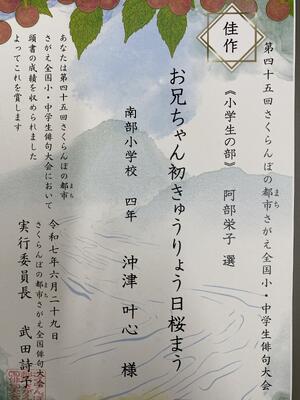 佳作
第四十五回さくらんぼの都市さがえ全国小・中学生俳句大会
まち
《小学生の部》 阿部栄子 選
お兄ちゃん初きゅうりょう日桜まう
南部小学校 四年 沖津 叶心 様
あなたは第四十五回さくらんぼの都市
まち
さがえ全国小・中学生俳句大会において
頭書の成績を収められました
よってこれを賞します
令和七年六月二十九日
さくらんぼの都市さがえ全国俳句大会
まち
実行委員長 武田詩子